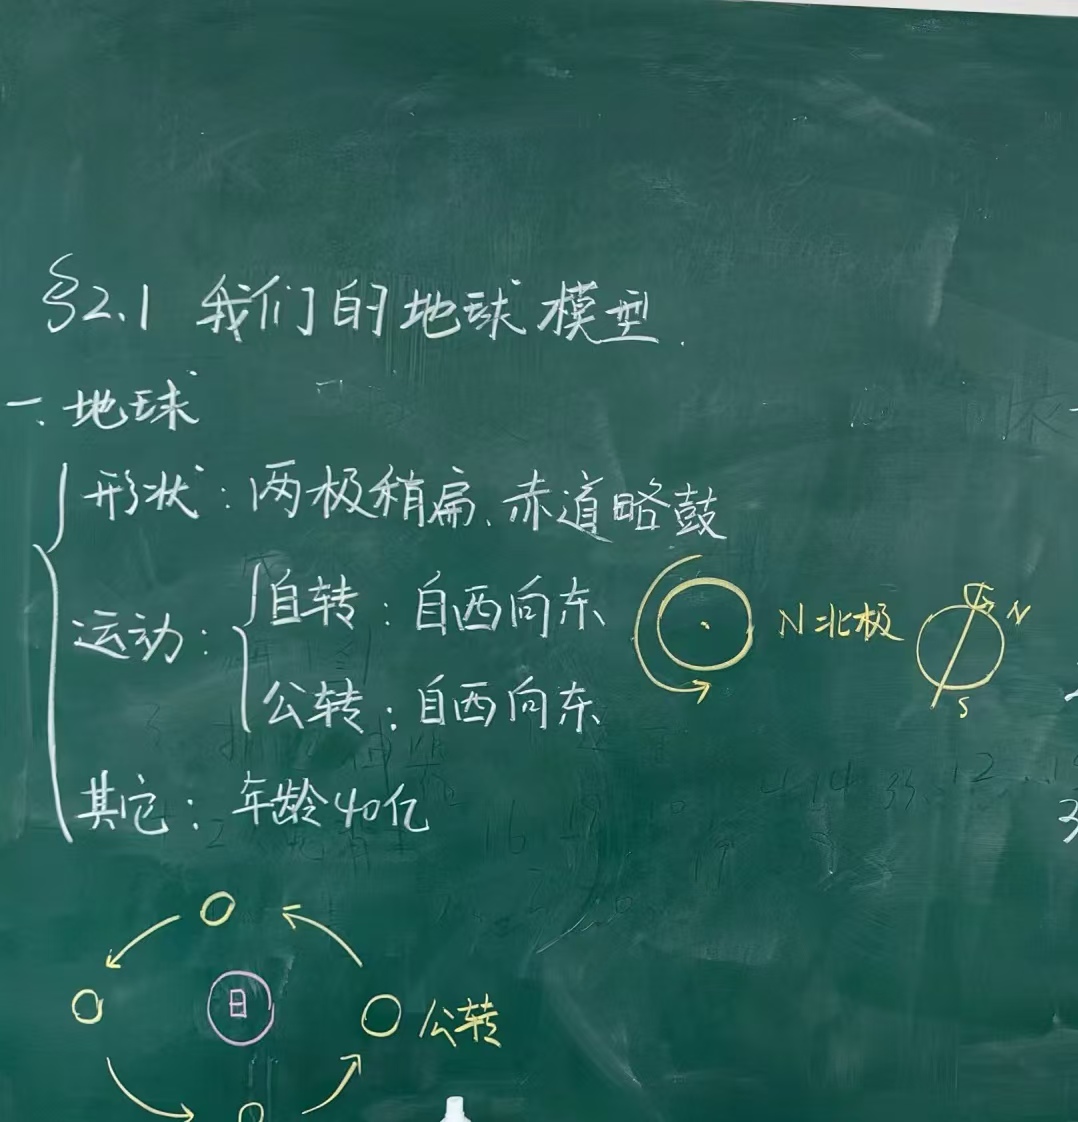 §2.1 我们的地球模型.
一.地球
形状：两极稍扁、赤道略鼓
运动：
自转：自西向东
N北极
N
S
公转：自西向东
其它：年龄40亿
日
公转